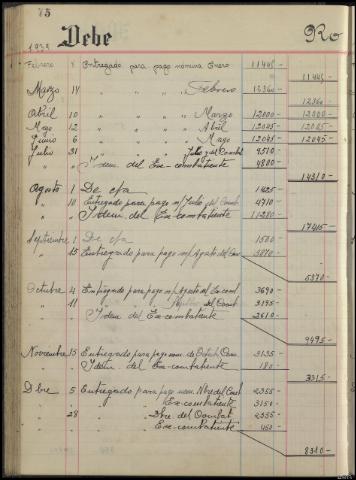 75
1939 Debe Ro
Febrero 8 Entregado para pago nómina Enero 11445-
11445-
Marzo 14 " " " " Febrero 12360-
12360-
Abril 10 " " " " Marzo 12000- 12000-
Mayo 12 " " " " Abril 12045- 12045-
Junio 6 " " " " Mayo 12045- 12045-
Julio 31 " " " " Julio del Combte 9510-
" " Idem del Ex-combatiente 4800-
14310-
Agosto 1 De cta 1425-
" 10 Entregado para pago n/ Julio del Comb 4710-
" " Idem del Ex-combatiente 11280-
17415-
Septiembre 1 De cta 1500-
" 15 Entregado para pago n/ Agosto del Com 3870-
5370-
Octubre 4 Entregado para pago n/ Agosto del Comb 3690-
" 11 " " " " del Comb 3195-
" " Idem del Ex-combatiente 2610-
9495-
Noviembre 15 Entregado para pago nom. de Octub. Com. 3135-
" " Idem del Ex-combatiente 180-
3315-
Dbre 5 Entregado para pago nom. Nbre del Comb 2355-
" " Ex-combatiente 3150-
" 28 " " Dbre del Combat 2355-
" " Ex-combatiente 450-
8310-